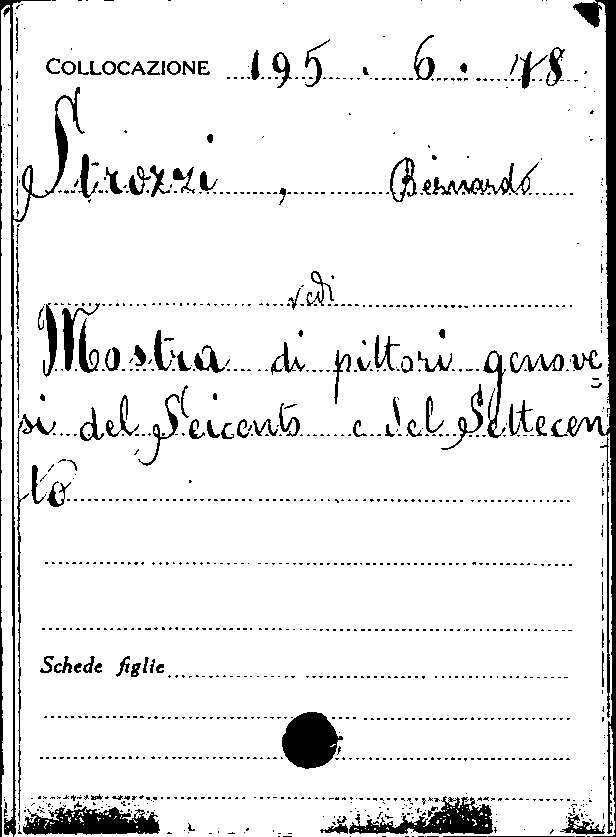 COLLOCAZIONE 195. 6. 48
Strozzi, Bernardo
vedi
Mostra di pittori genove=
si del Seicento e del Settecen
to
Schede figlie